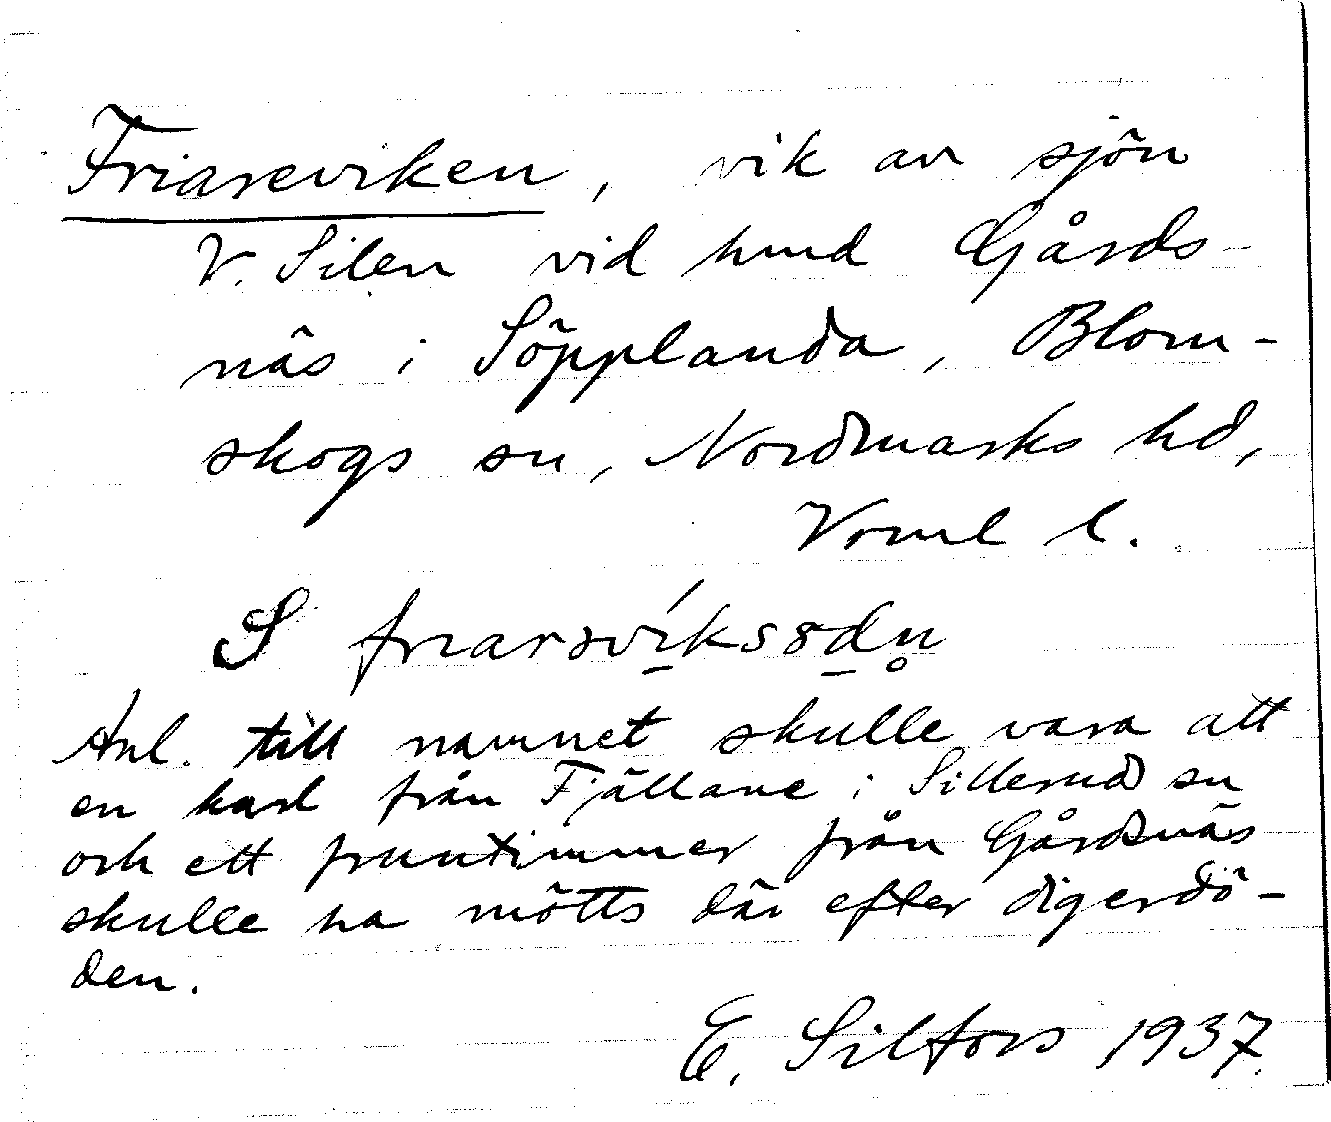 Friareviken, vik av sjön
V. Silen vid hmd Gårds-
näs i Söpplanda, Blom-
skogs sn, Nordmarks hd,
Vrml l.
S
Anl. till namnet skulle vara att
en karl från Fjällane i Sillerud sn
och ett fruntimmer från Gårdsnäs
skulle ha mötts där efter digerdö-
den.
E. Silfors 1937.